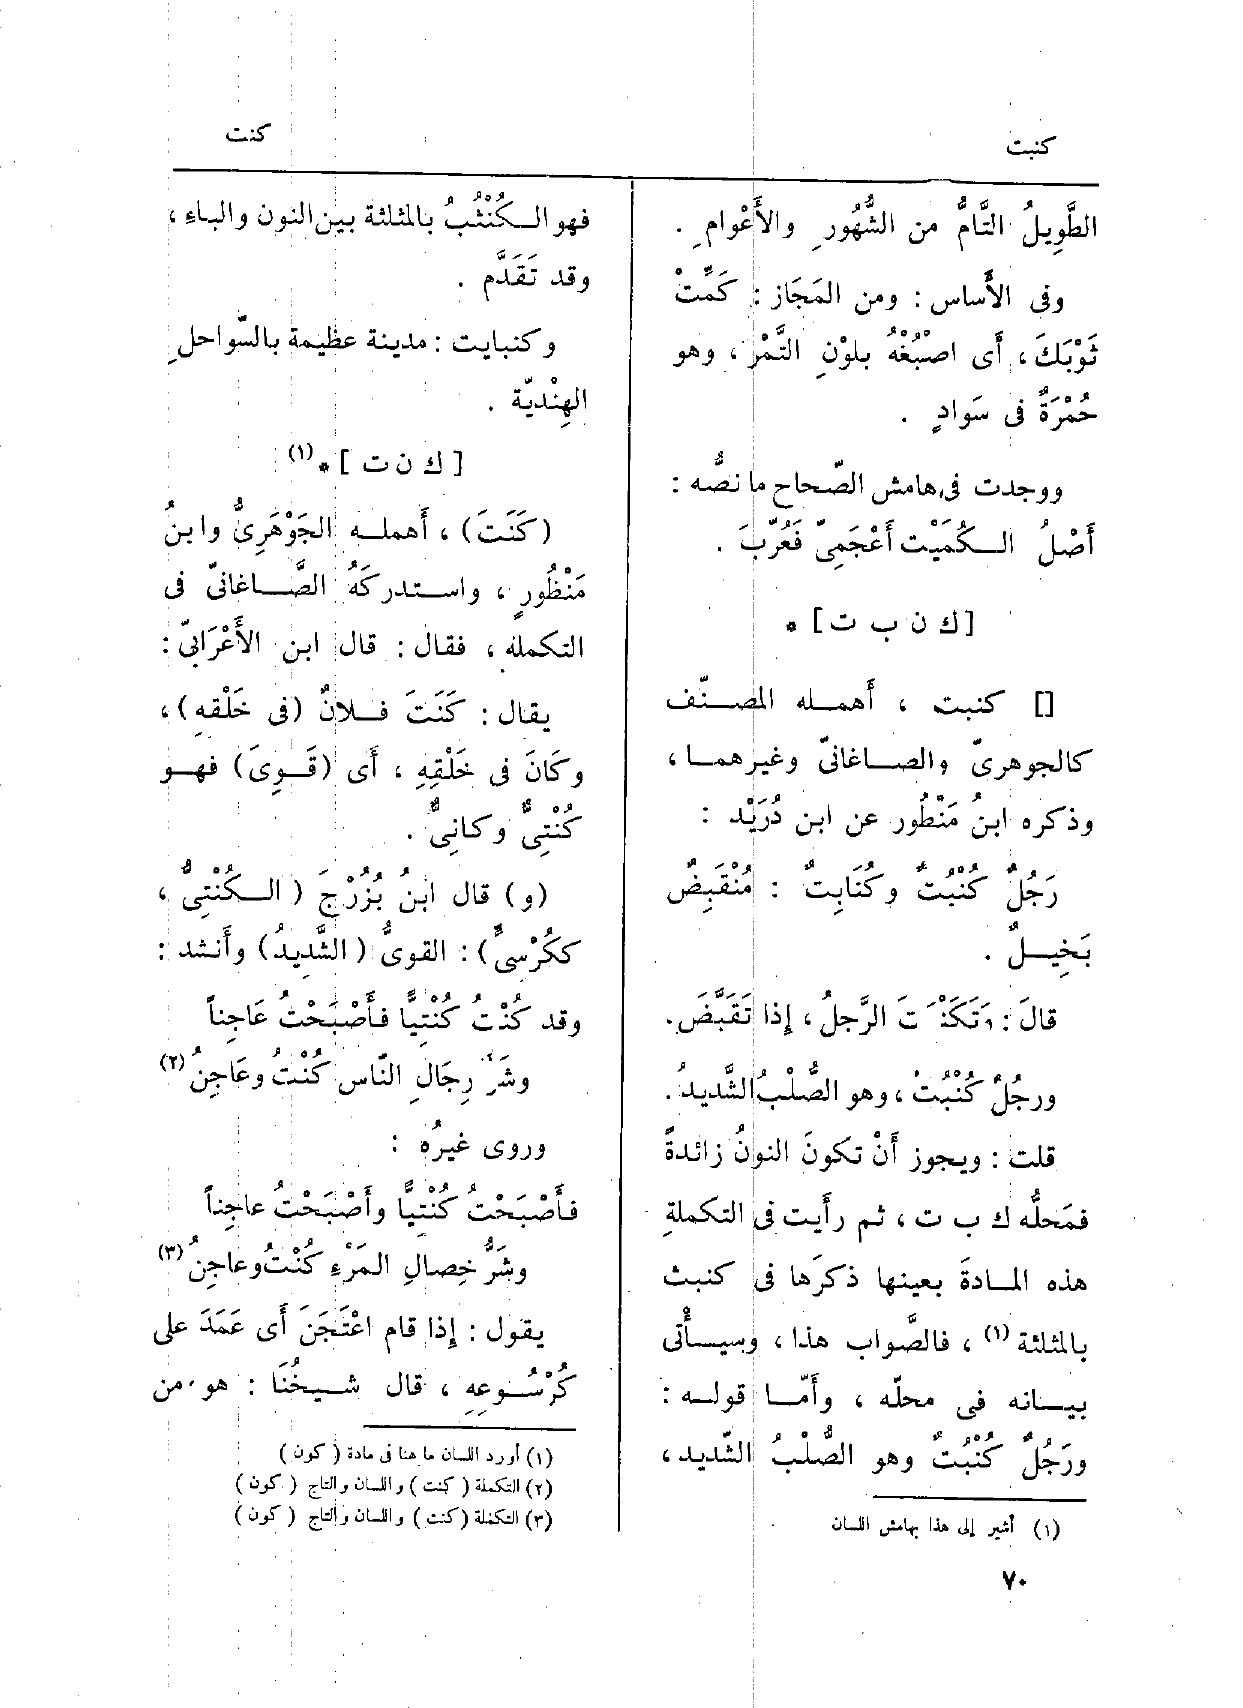 كنبت
كنت
الطَّوِيلُ التَّامُّ من الشُّهُورِ والأَعْوامِ .
وفى الأَساس : ومن المَجَاز : كَمِّتْ
ثَوْبَكَ ، أَى اصْبُغْهُ بلَوْنِ التَّمْرِ ، وهو
حُمْرَةٌ فى سَوادٍ .
ووجدت فى هامش الصّحاح ما نصُّه :
أَصْلُ الـكُمَيْت أَعْجَمِىّ فَعُرِّبَ .
[ ك ن ب ت ] *
[] كنبت ، أَهمـله المصـنّف
كالجوهرىّ والصـاغانىّ وغيرهمـا ،
وذكره ابنُ مَنْظُور عن ابن دُرَيْد :
رَجُلٌ كُنْبُتٌ وكُنَابِتٌ : مُنْقَبِضٌ
بَخِيـلٌ .
قالَ : وتَكَنْبَتَ الرَّجلُ ، إِذا تَقَبَّضَ.
ورجُلٌ كُنْبُتٌ ، وهو الصُّلْبُ الشَّديدُ .
قلت : ويجوز أَنْ تكونَ النونُ زائدةً
فمَحلُّه ك ب ت ، ثم رأَيت فى التكملةِ
هذه المـادةَ بعينها ذكرَها فى كنبث
بالمثلثة (١) ، فالصَّواب هذا ، وسيـأْتى
بيـانه فى محلّه ، وأَمّـا قولـه :
ورَجُلٌ كُنْبُتٌ وهو الصُّلْبُ الشّديد ،
(١) أشير إلى هذا بهامش اللسان
فهو الـكُنْثُبُ بالمثلثة بين النون والباء ،
وقد تَقَدَّم .
وكنبايت : مدينة عظيمة بالسّواحلِ
الهِنْديّة .
[ ك ن ت ] * (١)
(كَنَتَ) ، أَهملـه الجَوْهَرِىُّ وابنُ
مَنْظُورٍ ، واسـتدركَهُ الصَّـاغانىّ فى
التكملة ، فقال : قال ابن الأَعْرَابىّ :
يقال : كَنَتَ فـلانٌ (فى خَلْقه) ،
وكَانَ فى خَلْقِهِ ، أَى (قَـوِىَ) فهـو
كُنْتِىٌّ وكانِىٌّ .
(و) قال ابنُ بُزُرْجَ ( الـكُنْتِىُّ ،
ككُرْسىٍّ) : القوىُّ (الشَّدِيدُ) وأَنشد :
وقد كُنْتُ كُنْتِيًّا فأَصْبَحْتُ عَاجِناً
وشَرُّ رِجَالِ النّاس كُنْتُ وعَاجِنُ (٢)
وروى غيرُه :
فأَصْبَحْتُ كُنْتِيًّا وأَصْبَحْتُ عاجِناً
وشَرُّ خِصالِ المَرْءِ كُنْتُ وعاجِنُ (٣)
يقول : إِذا قام اعْتَجَنَ أَى عَمَدَ على
كُرْسُـوعِهِ ، قال شـيخُنَا : هو من
(١) أورد اللسان ما هنا فى مادة ( كون )
(٢) التكملة ( كنت ) واللسان والتاج ( كون )
(٣) التكملة (كنت ) واللسان والتاج ( كون )
٧٠